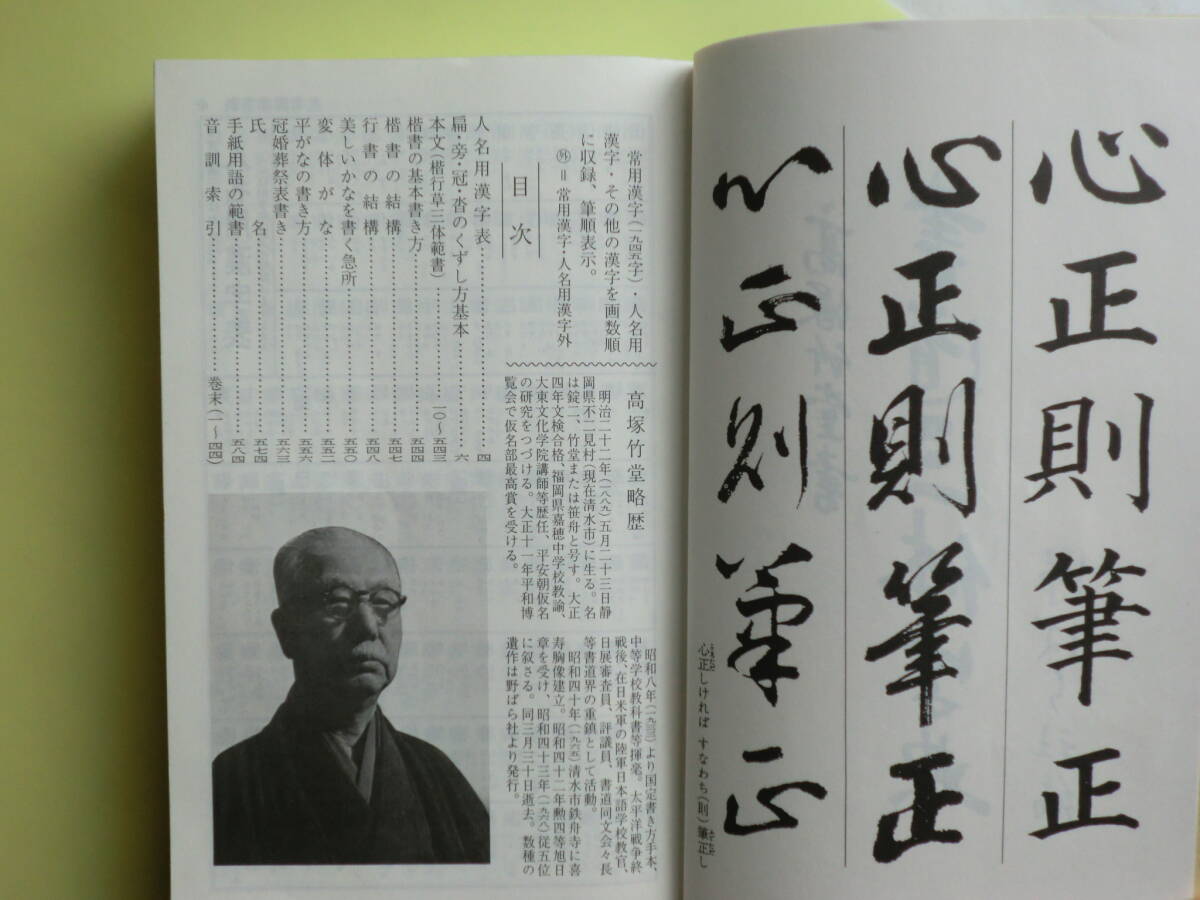 心正則筆正
心正則筆正
心正則筆正
心正しければ すなわち(則)筆正し
常用漢字(一九四五字)・人名用
漢字・その他の漢字を画数順
に収録、筆順表示。
㊕=常用漢字・人名用漢字外
目次
人名用漢字表……………四
扁・旁・冠・沓のくずし方基本……………六
本文(楷行草三体範書)……………一〇〜五四三
楷書の基本書き方……………五四四
楷書の結構……………五四七
行書の結構……………五四八
美しいかなを書く急所……………五五〇
変体がな……………五五二
平がなの書き方……………五五六
冠婚葬祭表書き……………五六三
氏名……………五七四
手紙用語の範書……………五八四
音訓索引……………巻末(一〜四四)
高塚竹堂略歴
明治二十二年(一八八九)五月二十三日静
岡県不二見村(現在清水市)に生る。名
は錠二、竹堂または笹舟と号す。大正
四年文検合格、福岡県嘉穂中学校教諭、
大東文化学院講師等歴任、平安朝仮名
の研究をつづける。大正十一年平和博
覧会で仮名部最高賞を受ける。
昭和八年(一九三三)より国定書き方手本、
中等学校教科書等揮毫。太平洋戦争終
戦後、在日米軍の陸軍日本語学校教官、
日展審査員、評議員、書道同文会々長
等書道界の重鎮として活動。
昭和四十年(一九六五)清水市鉄舟寺に喜
寿胸像建立。昭和四十二年勲四等旭日
章を受け、昭和四十三年(一九六八)従五位
に叙さる。同三月三十日逝去。数種の
遺作は野ばら社より発行。